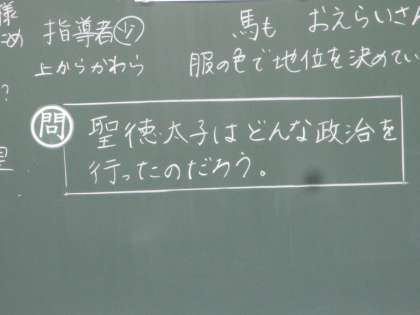 様
ため 指導者少 馬も おえらいさん
上からかわら 服の色で地位を決めてい
?
問 聖徳太子はどんな政治を
行ったのだろう。